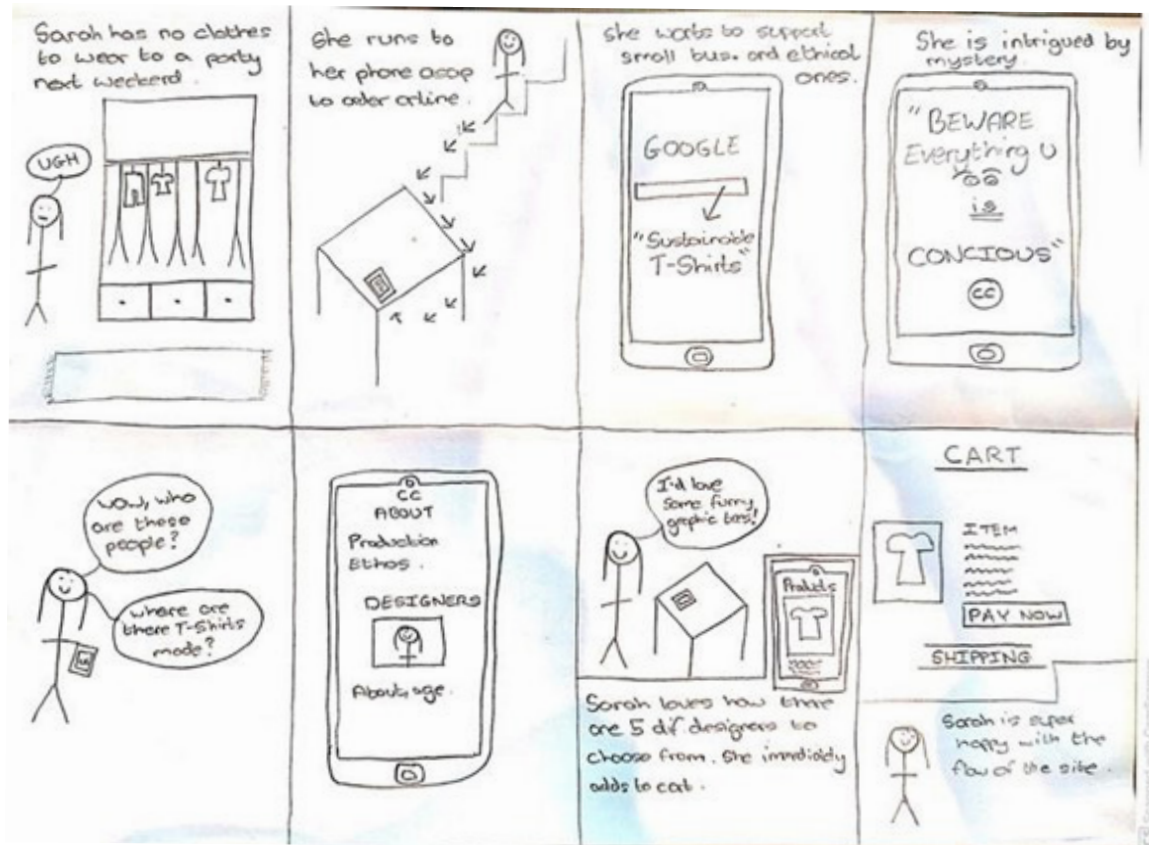 Sarah has no clothes
to wear to a party
next weekend.
UGH
She runs to
her phone asap
to order online.
She wants to support
small bus. and ethical
ones.
GOOGLE
"Sustainable
T-Shirts"
She is intrigued by
mystery.
"BEWARE
Everything U
is
CONCIOUS"
CC
WOW, who
are these
people?
where are
there T-Shirts
made?
CC
ABOUT
Production
Ethos.
DESIGNERS
About, age.
I'd love
some funny
graphic tees!
Products
Sarah loves how there
are 5 dif designers to
choose from. She immediatly
adds to cart.
CART
ITEM
PAY NOW
SHIPPING
Sarah is super
happy with the
flow of the site.